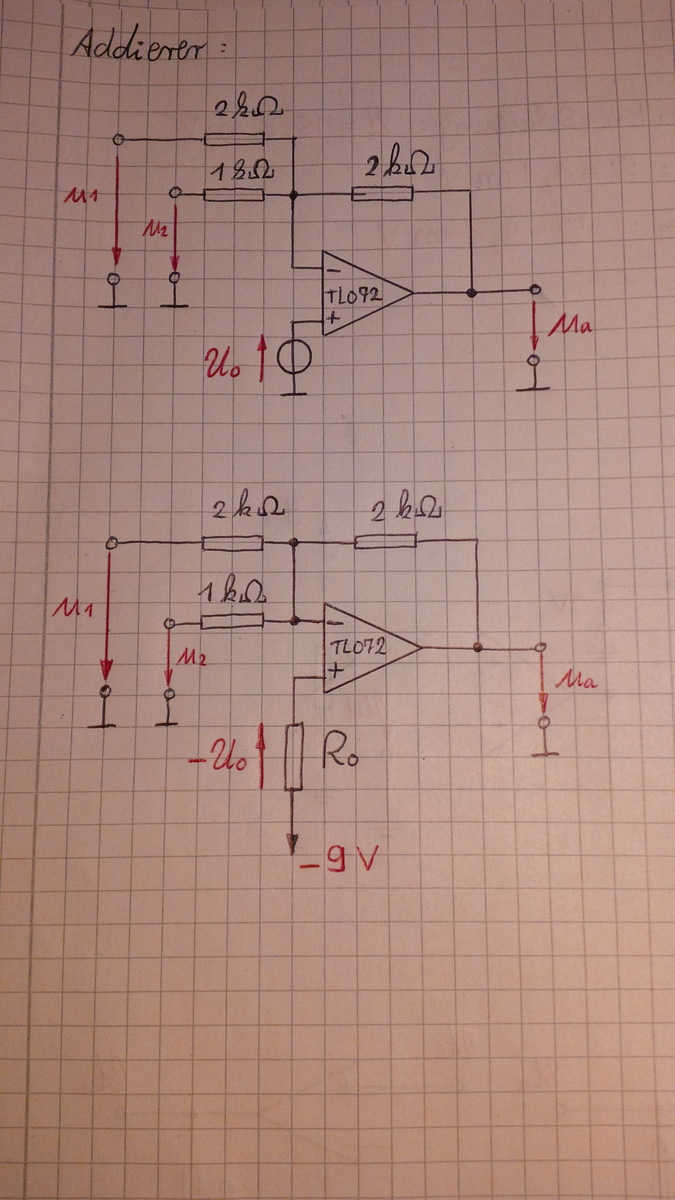 Addierer:
2kΩ
1kΩ
2kΩ
u1
u2
−
TL072
+
ua
U0
2kΩ
2kΩ
1kΩ
u1
u2
−
TL072
+
ua
-U0
R0
-9V